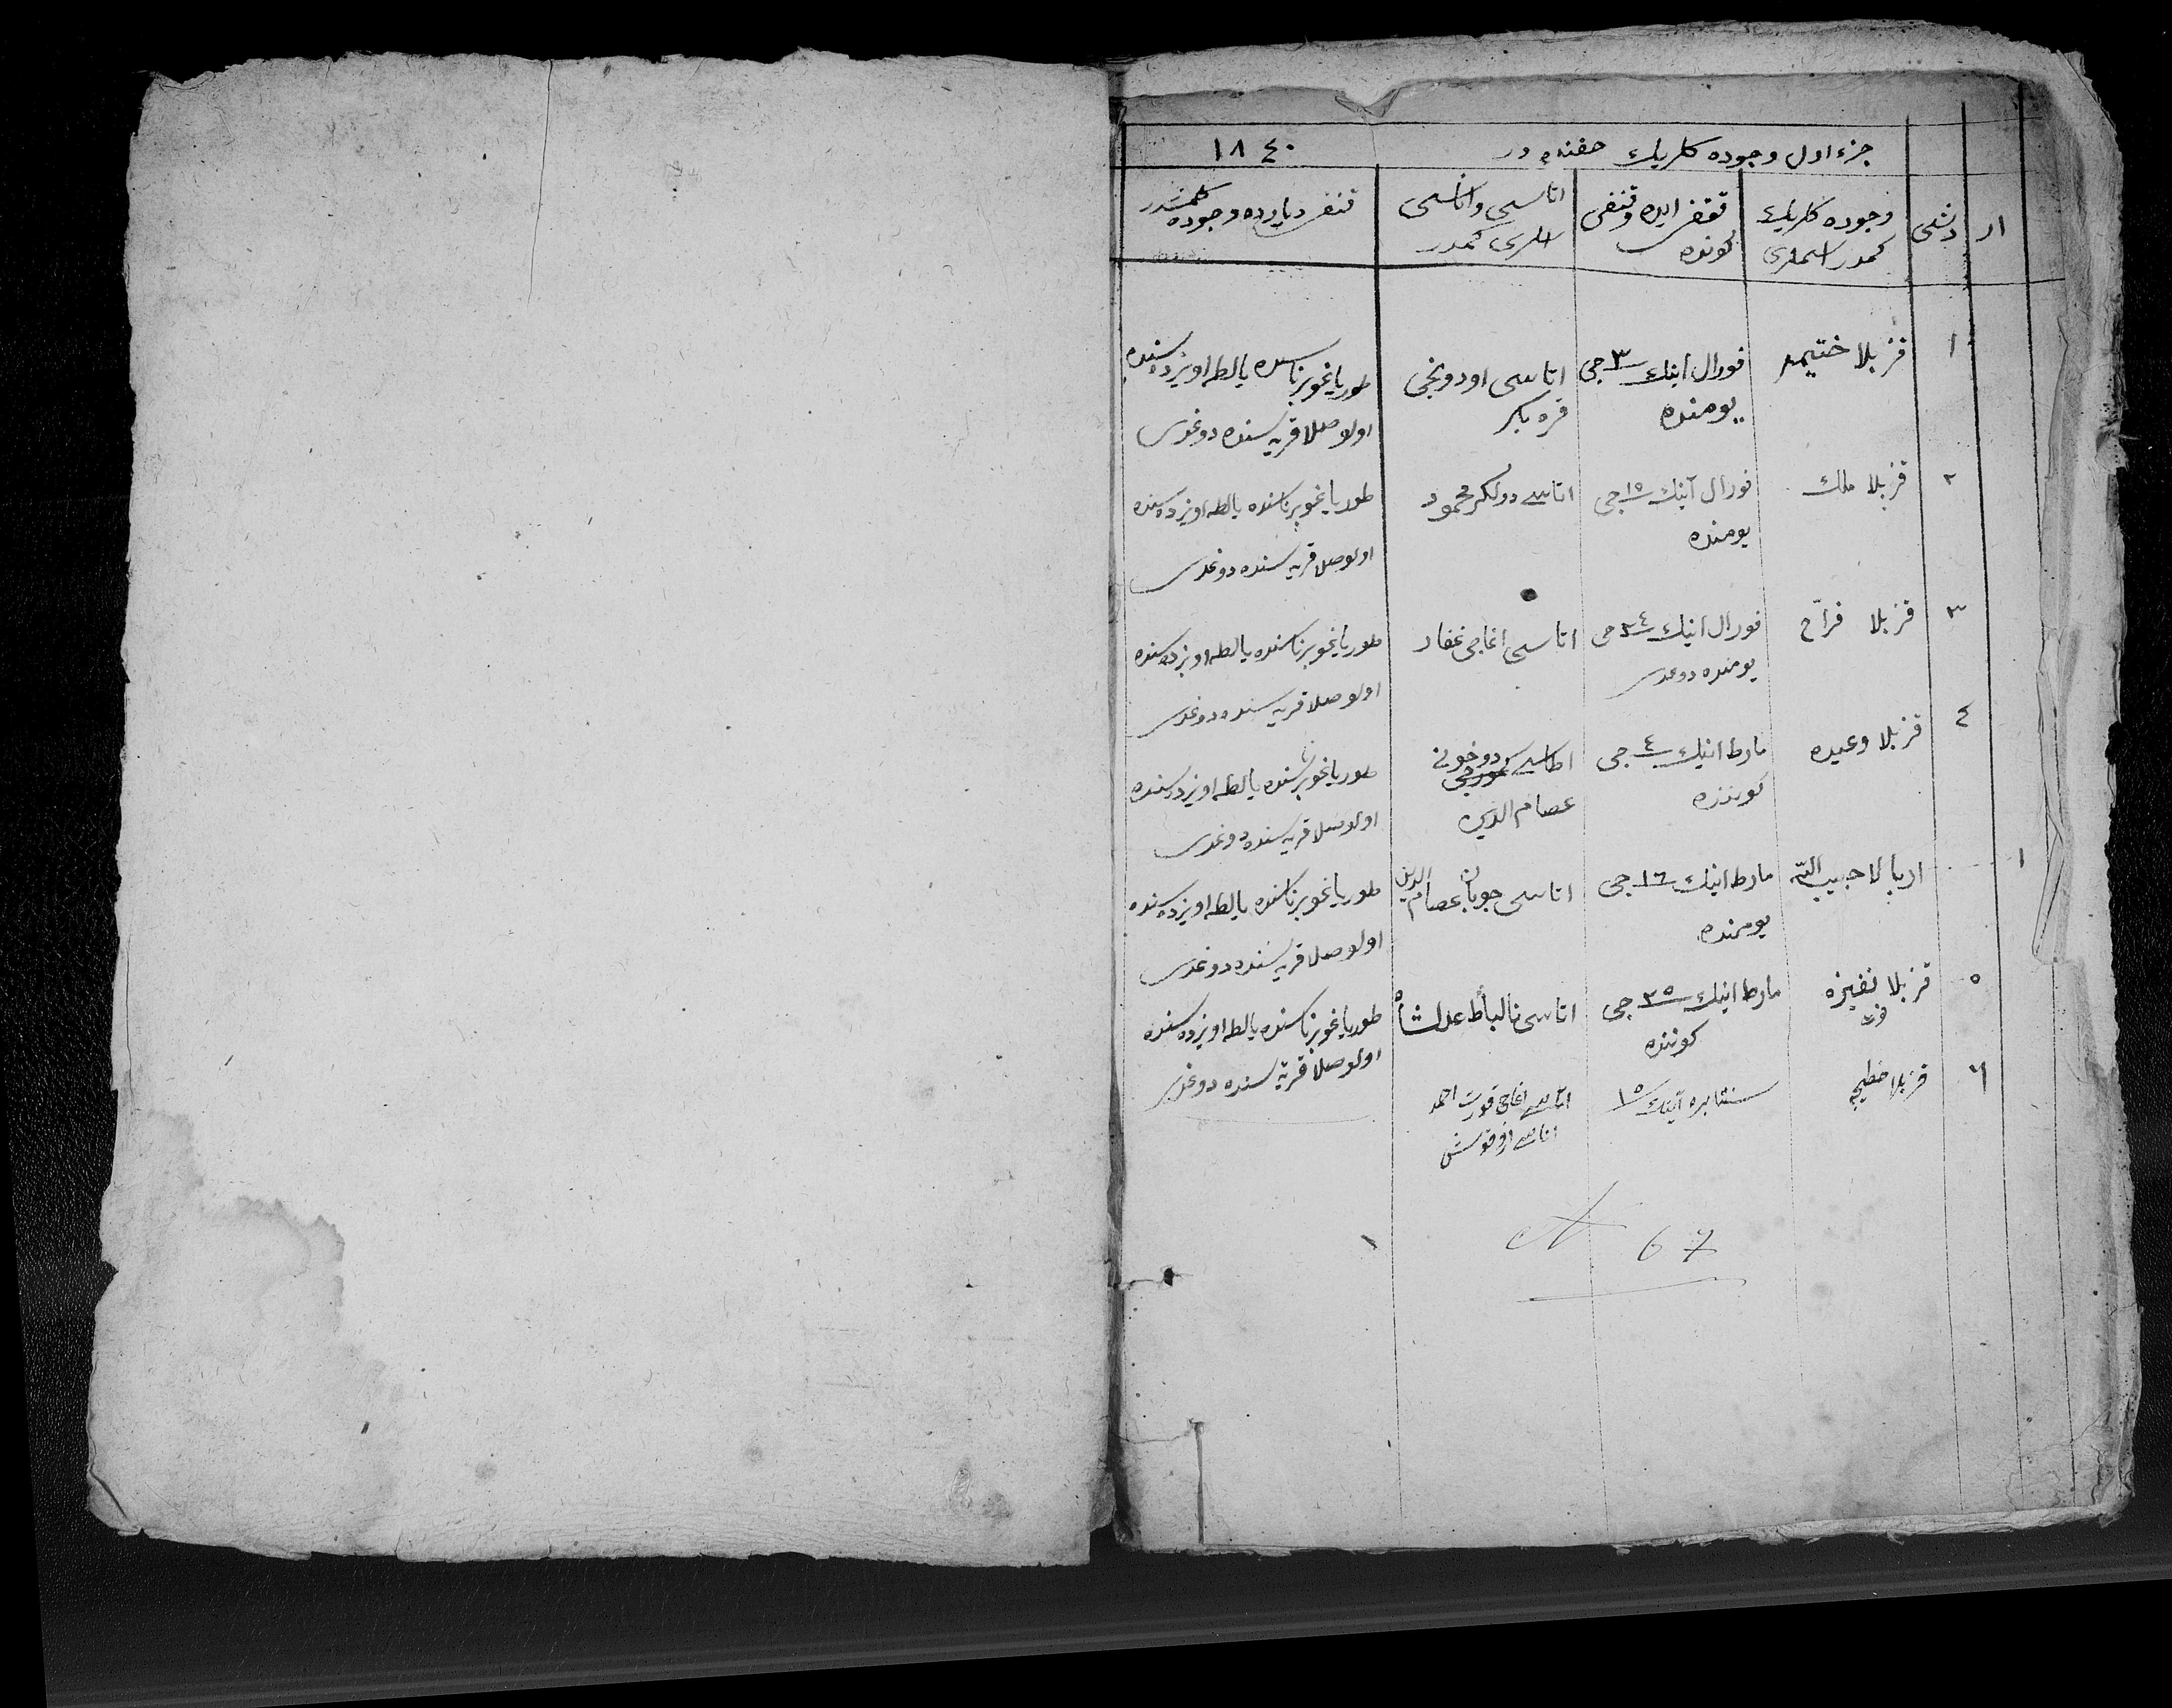 جزء اول وجوده كلريك حقنده در
١٨٤٠
ار
دشی
وجوده كلريك
كمدر اسملری
قغفر ايده و قنغی
كونده
اتاسی و اناسی
اسملری كمدر
قنغی ديارده وجوده كلمشدر
١
قز بلا
فورال اينك ٣ جی
يومنده
اتاسی اودونجی
قره بكر
طوريا غوبرناسنده يالطه اويزدهسنده
اولوصلا قريه سنده دوغدی
٢
قز بلا ملك
فورال آينك ١٥ جی
يومنده
اتاسی دولكر محمود
طوريا غوبرناسنده يالطه اويزدهسنده
اولوصلا قريه سنده دوغدی
٣
قز بلا فراح
فورال اينك ٢٤ جی
يومنده دوغدی
اتاسی اغاجی غفار
طوريا غوبرناسنده يالطه اويزدهسنده
اولوصلا قريه سنده دوغدی
٤
قز بلا وعيده
مارط اينك ٤ جی
كوننده
اطاسی
عصام الدين
طوريا غوبرناسنده يالطه اويزدهسنده
اولوصلا قريه سنده دوغدی
١
اربالا حبيب الله
مارط اينك ١٦ جی
يومنده
اتاسی جوبان عصام الدين
طوريا غوبرناسنده يالطه اويزدهسنده
اولوصلا قريه سنده دوغدی
٥
قز بلا نفيزه
فوت
مارط اينك ٢٥ جی
كوننده
اتاسی نالباط عدلشاه
طوريا غوبرناسنده يالطه اويزدهسنده
اولوصلا قريه سنده دوغدی
٦
قز بلا خطيجه
سنتابره آينك ١٥
اتاسی اغاجی قورت احمد
اناسی
67